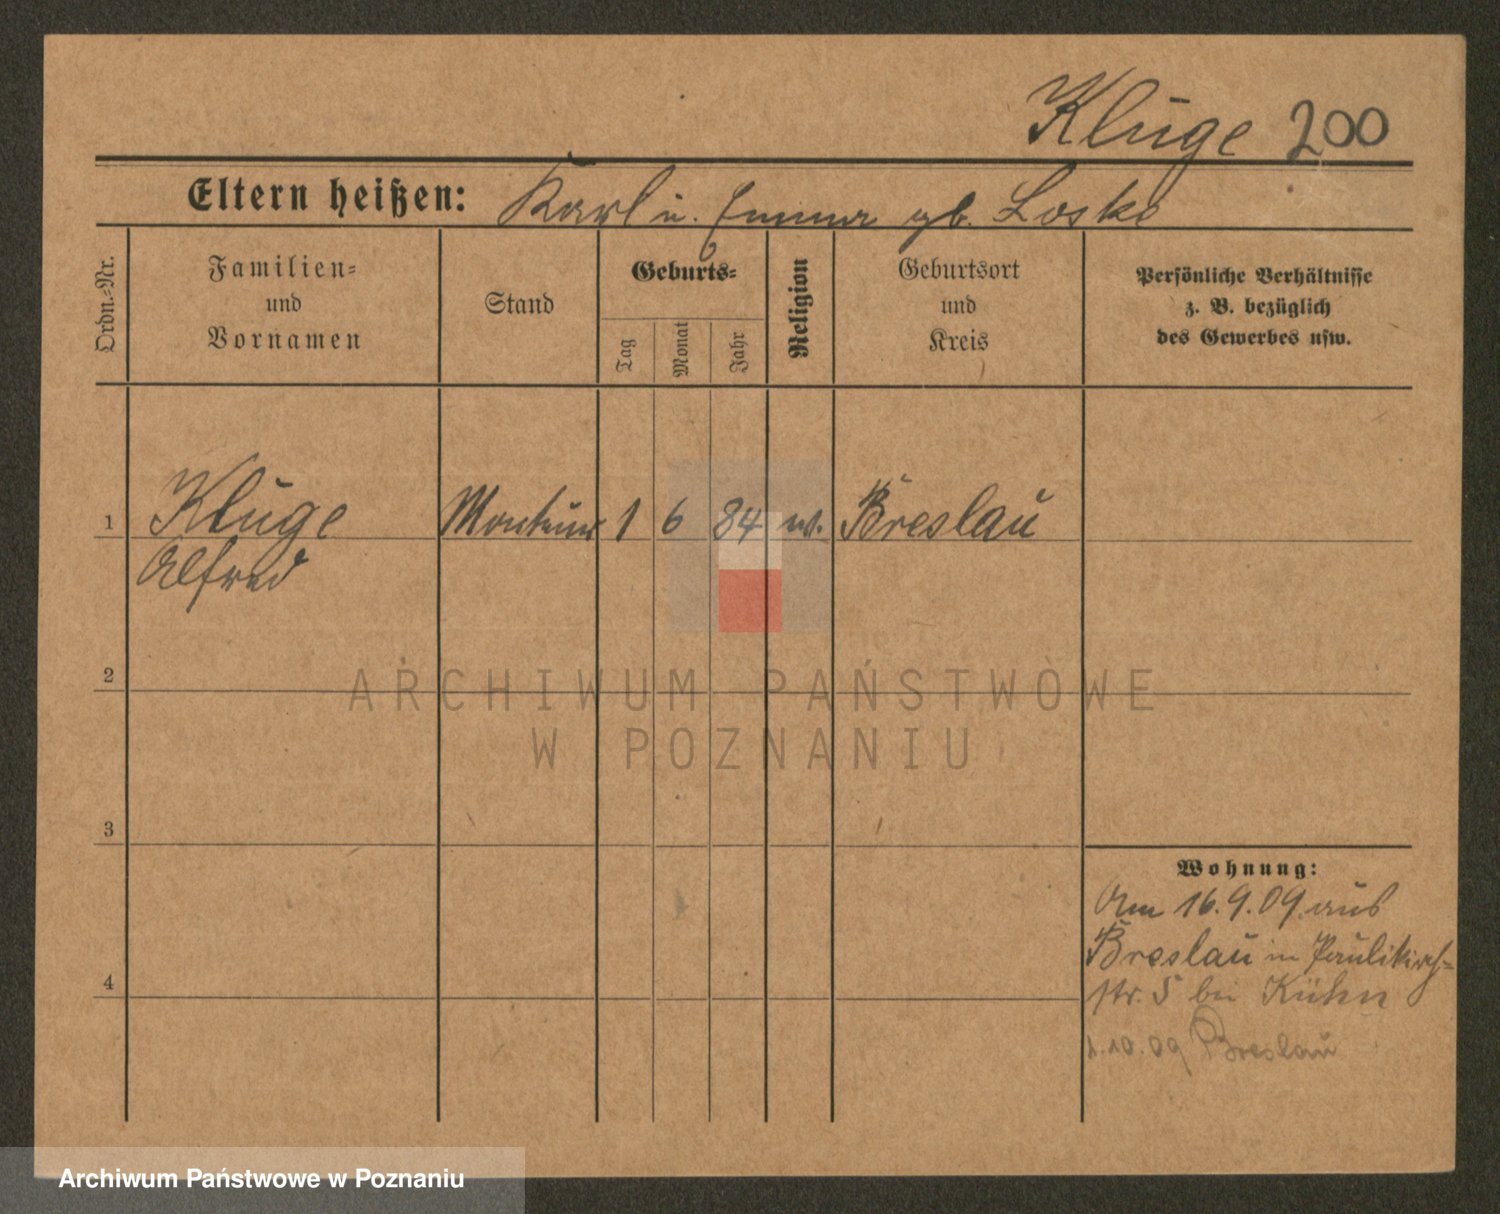 Kluge 200
Eltern heißen: Karl u. Emma gb. Loske
Ordn.-Nr.
Familien-
und
Vornamen
Stand
Geburts-
Tag
Monat
Jahr
Religion
Geburtsort
und
Kreis
Persönliche Verhältnisse
z. B. bezüglich
des Gewerbes usw.
1 Kluge Monteur 1 6 84 ev. Breslau
Alfred
2
ARCHIWUM PAŃSTWOWE
W POZNANIU
3
Wohnung:
Am 16.9.09 aus
Breslau in Paulikirch-
4
str. 5 bei Kühn
1.10.09 Breslau
Archiwum Państwowe w Poznaniu